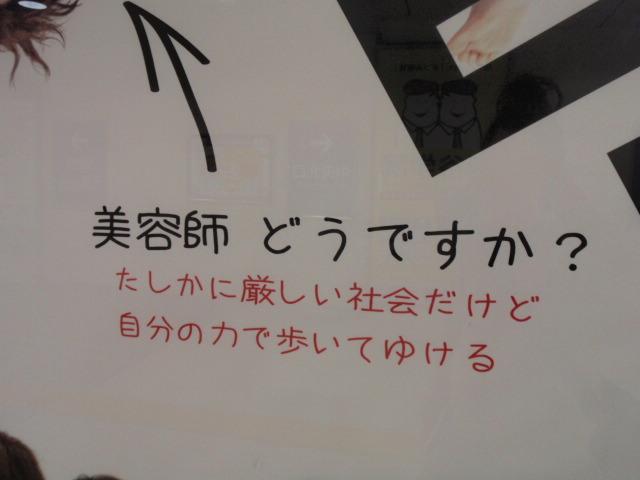 美容師 どうですか?
たしかに厳しい社会だけど
自分の力で歩いてゆける